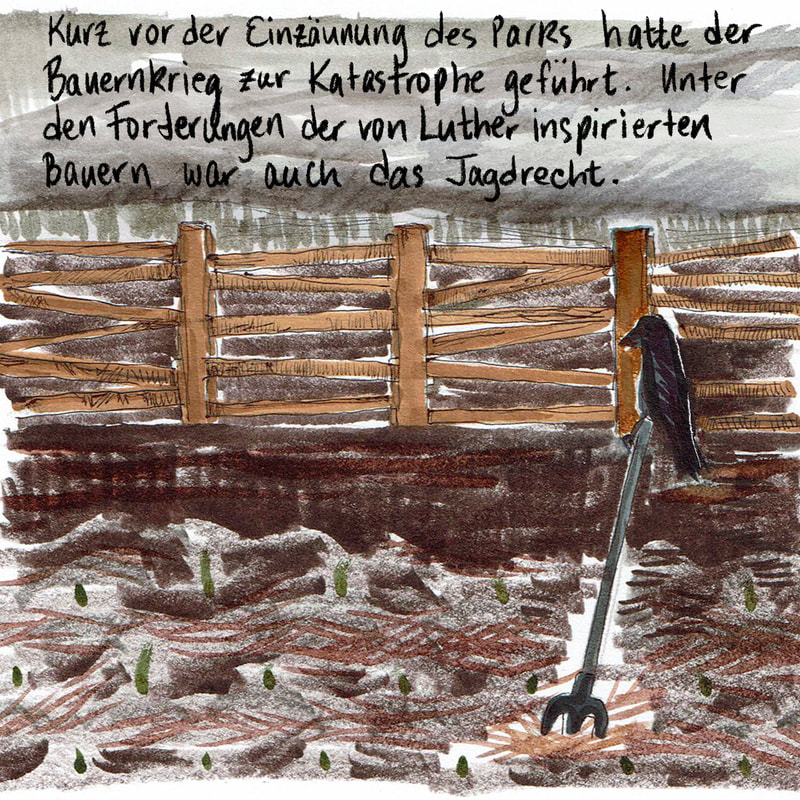 Kurz vor der Einzäunung des Parks hatte der
Bauernkrieg zur Katastrophe geführt. Unter
den Forderungen der von Luther inspirierten
Bauern war auch das Jagdrecht.